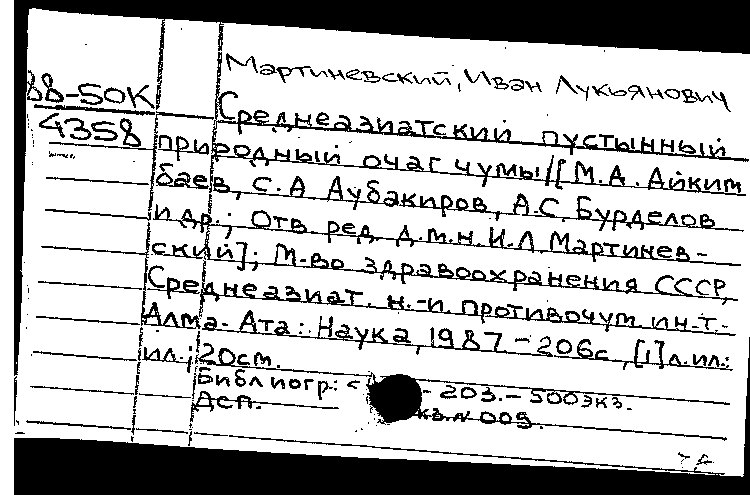 Мартиневский, Иван Лукьянович
88-50К
4358
Среднеазиатский пустынный
природный очаг чумы/[М.А. Айким
баев, С.А Аубакиров, А.С. Бурделов
и др.; Отв. ред. д.м.н. И.Л. Мартинев-
ский]; М-во здравоохранения СССР,
Среднеазиат. н.-и. противочум. ин-т.-
Алма-Ата: Наука, 1987 - 206с, [1]л.ил.:
ил.; 20см.
Библиогр: с - 203. - 500экз.
Дсп. кз. № 009.